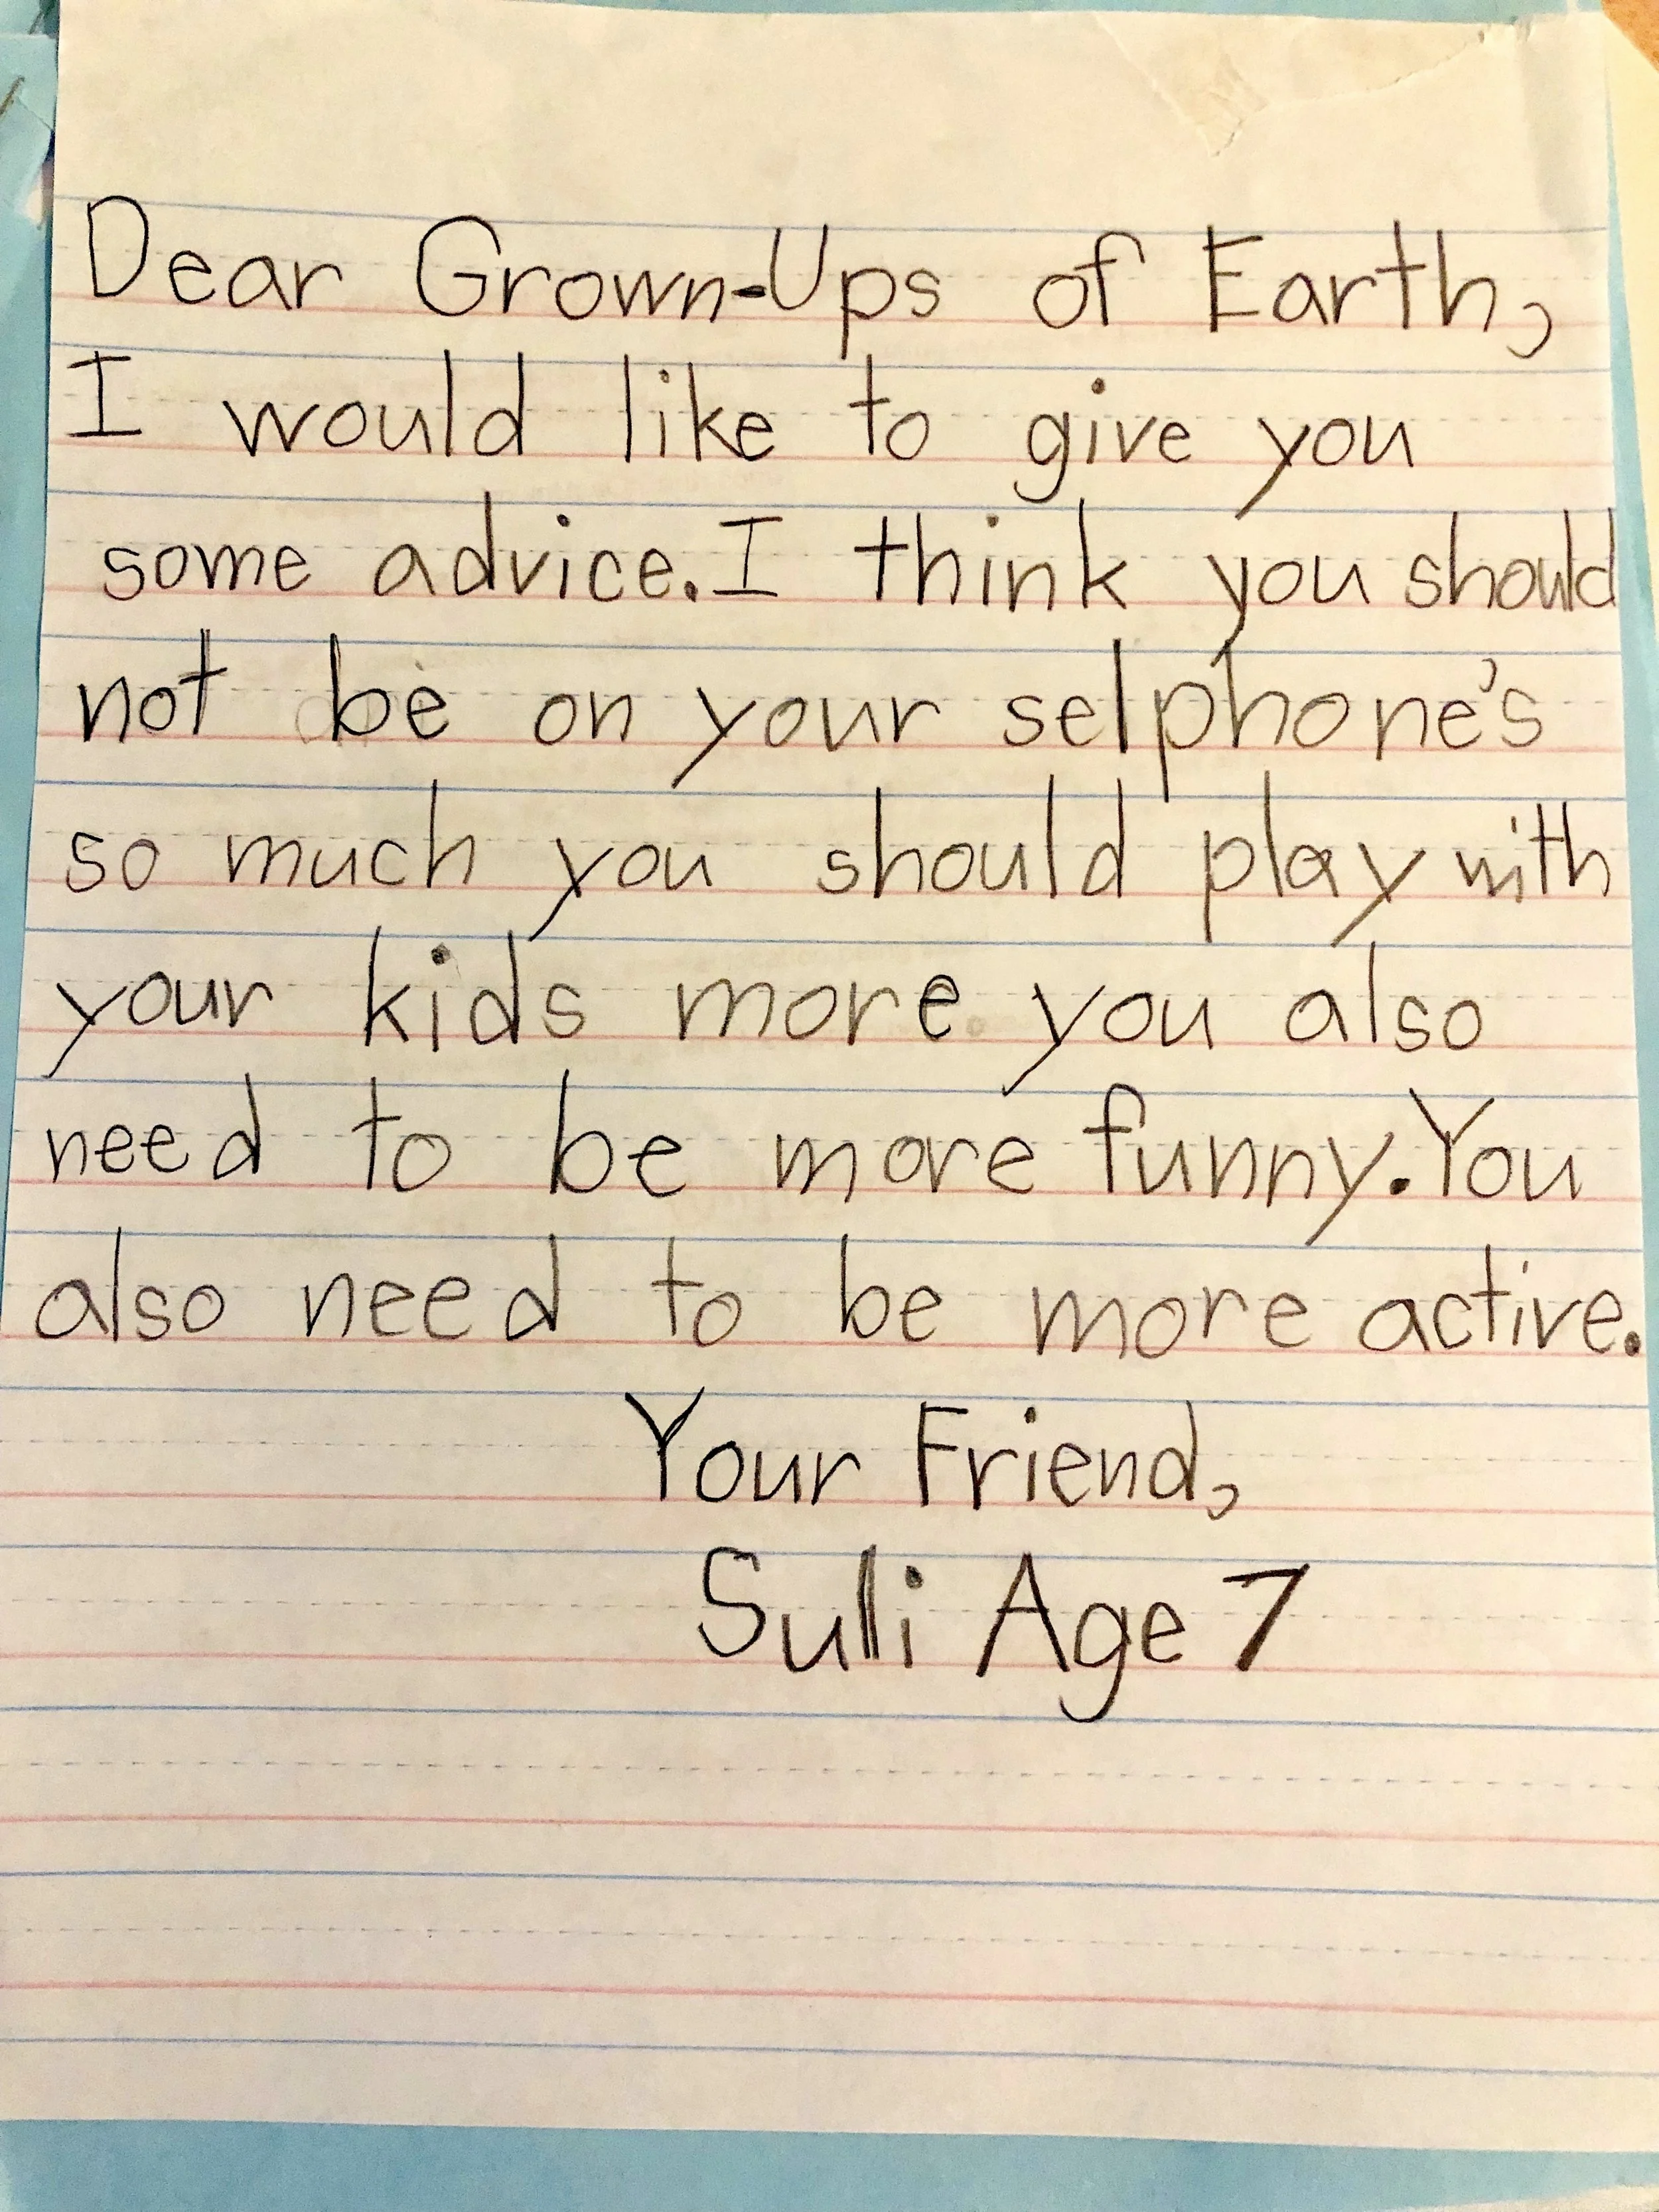 Dear Grown-Ups of Earth,
I would like to give you
some advice. I think you should
not be on your selphone's
so much you should play with
your kids more you also
need to be more funny. You
also need to be more active.
Your Friend,
Sulli Age 7